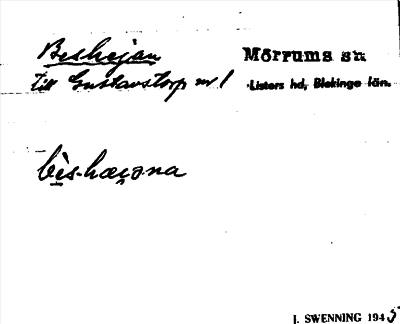 Beshejan
till Gustavstorp nr 1
Mörrums sn
Listers hd, Blekinge län.
bès-hæjəna
J. SWENNING 1945